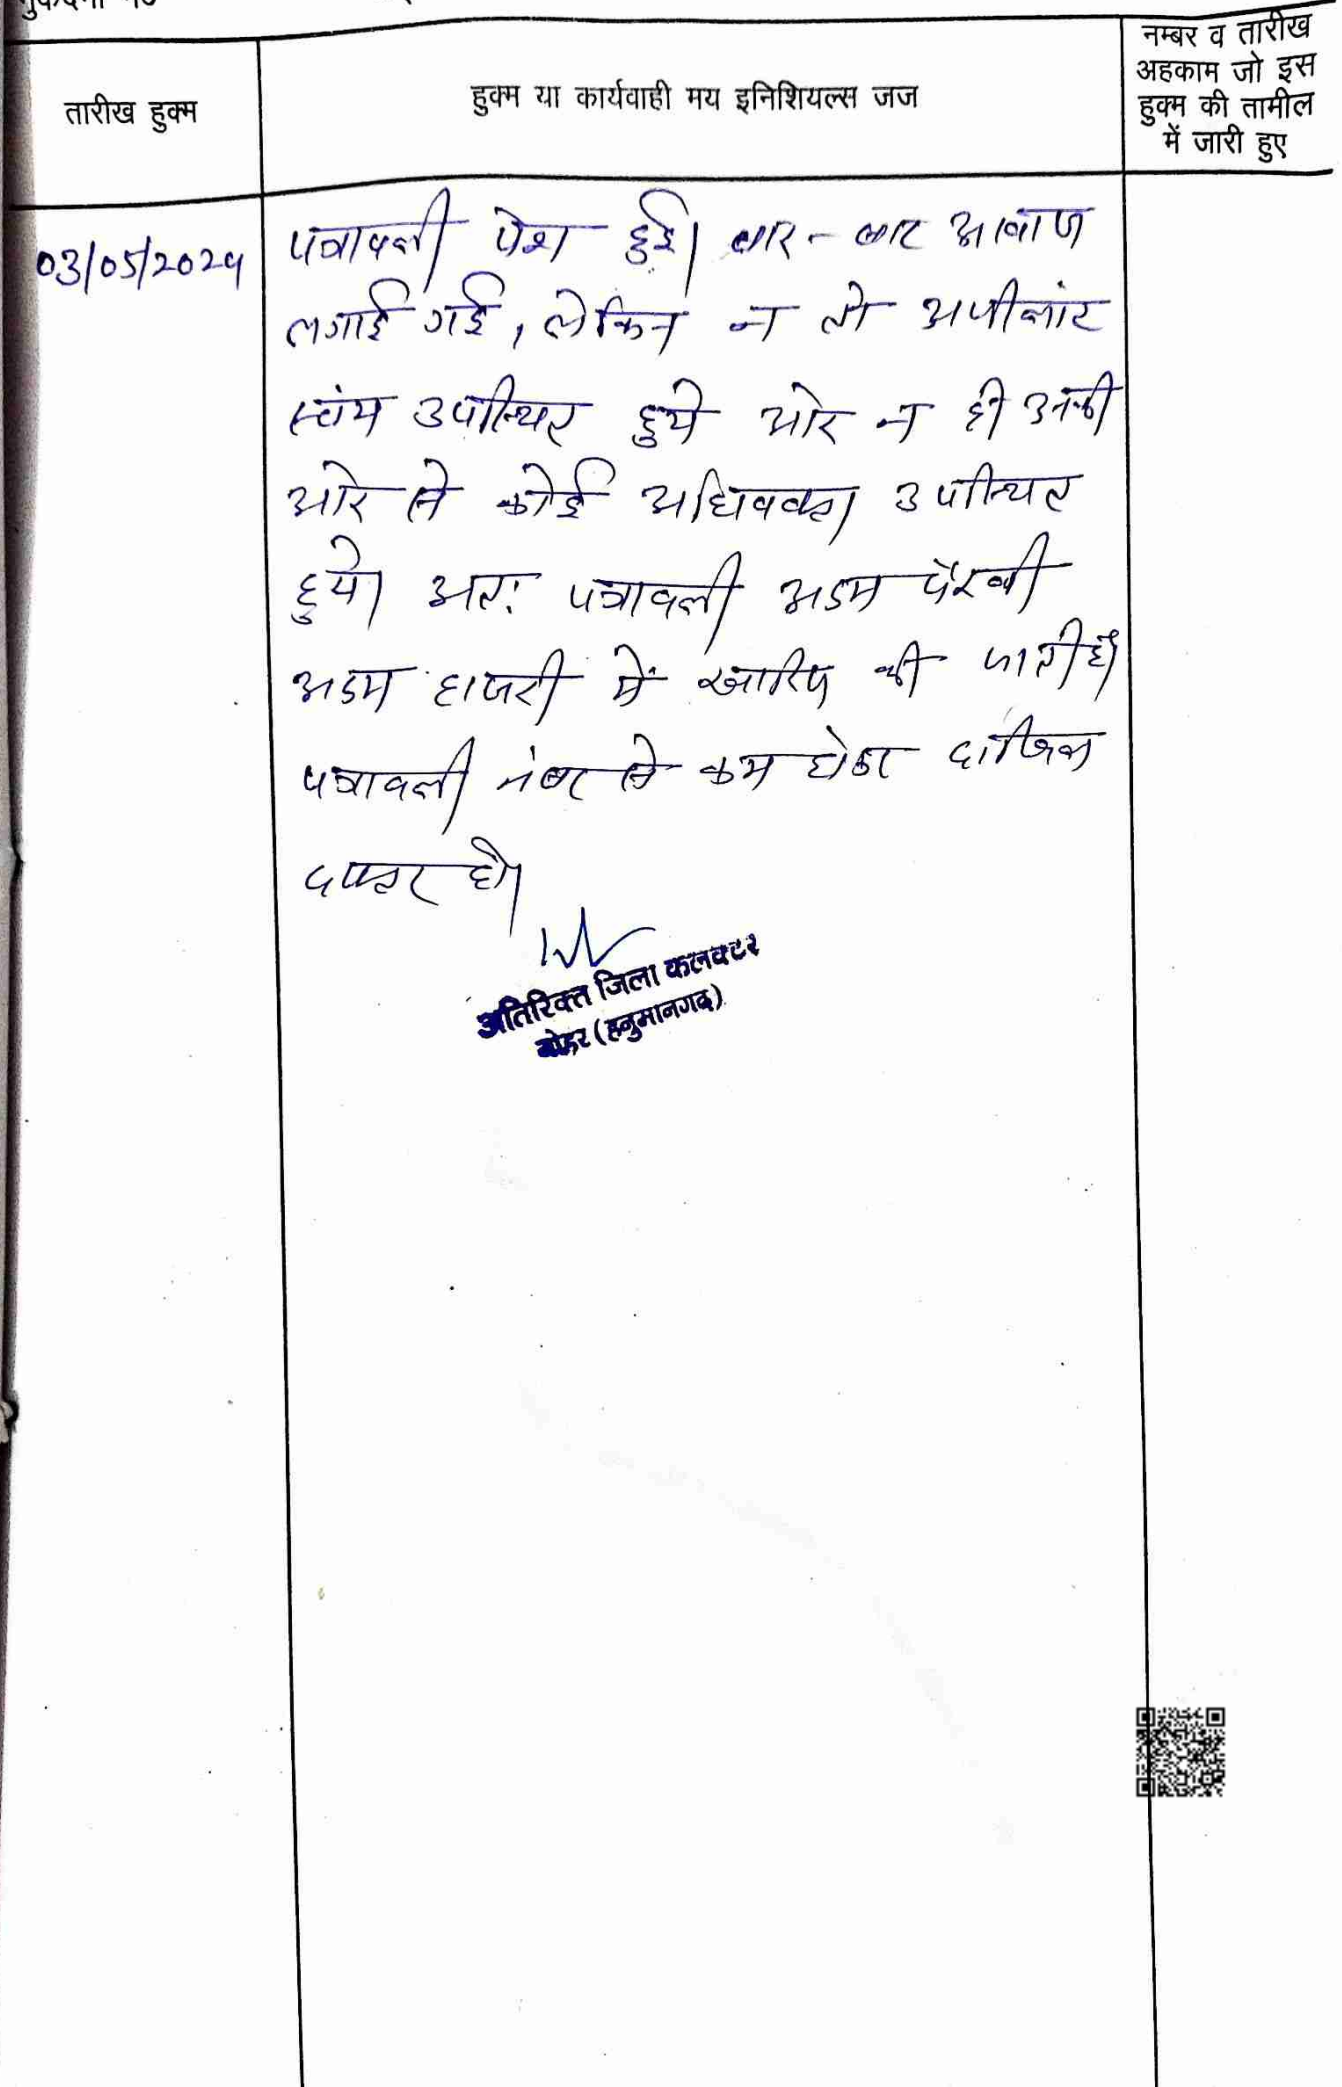 तारीख हुक्म
हुक्म या कार्यवाही मय इनिशियल्स जज
नम्बर व तारीख
अहकाम जो इस
हुक्म की तामील
में जारी हुए
03/05/2024
पत्रावली पेश हुई। बार-बार आवाज
लगाई गई, लेकिन न तो अपीलांट
स्वंय उपस्थित हुये ओर न ही उनकी
ओर से कोई अधिवक्ता उपस्थित
हुये। अतः पत्रावली अदम पैरवी
अदम हाजरी में खारिज की जाती है।
पत्रावली नंबर से कम होकर दाखिल
दफ्तर हो।
अतिरिक्त जिला कलक्टर
नोहर (हनुमानगढ़)